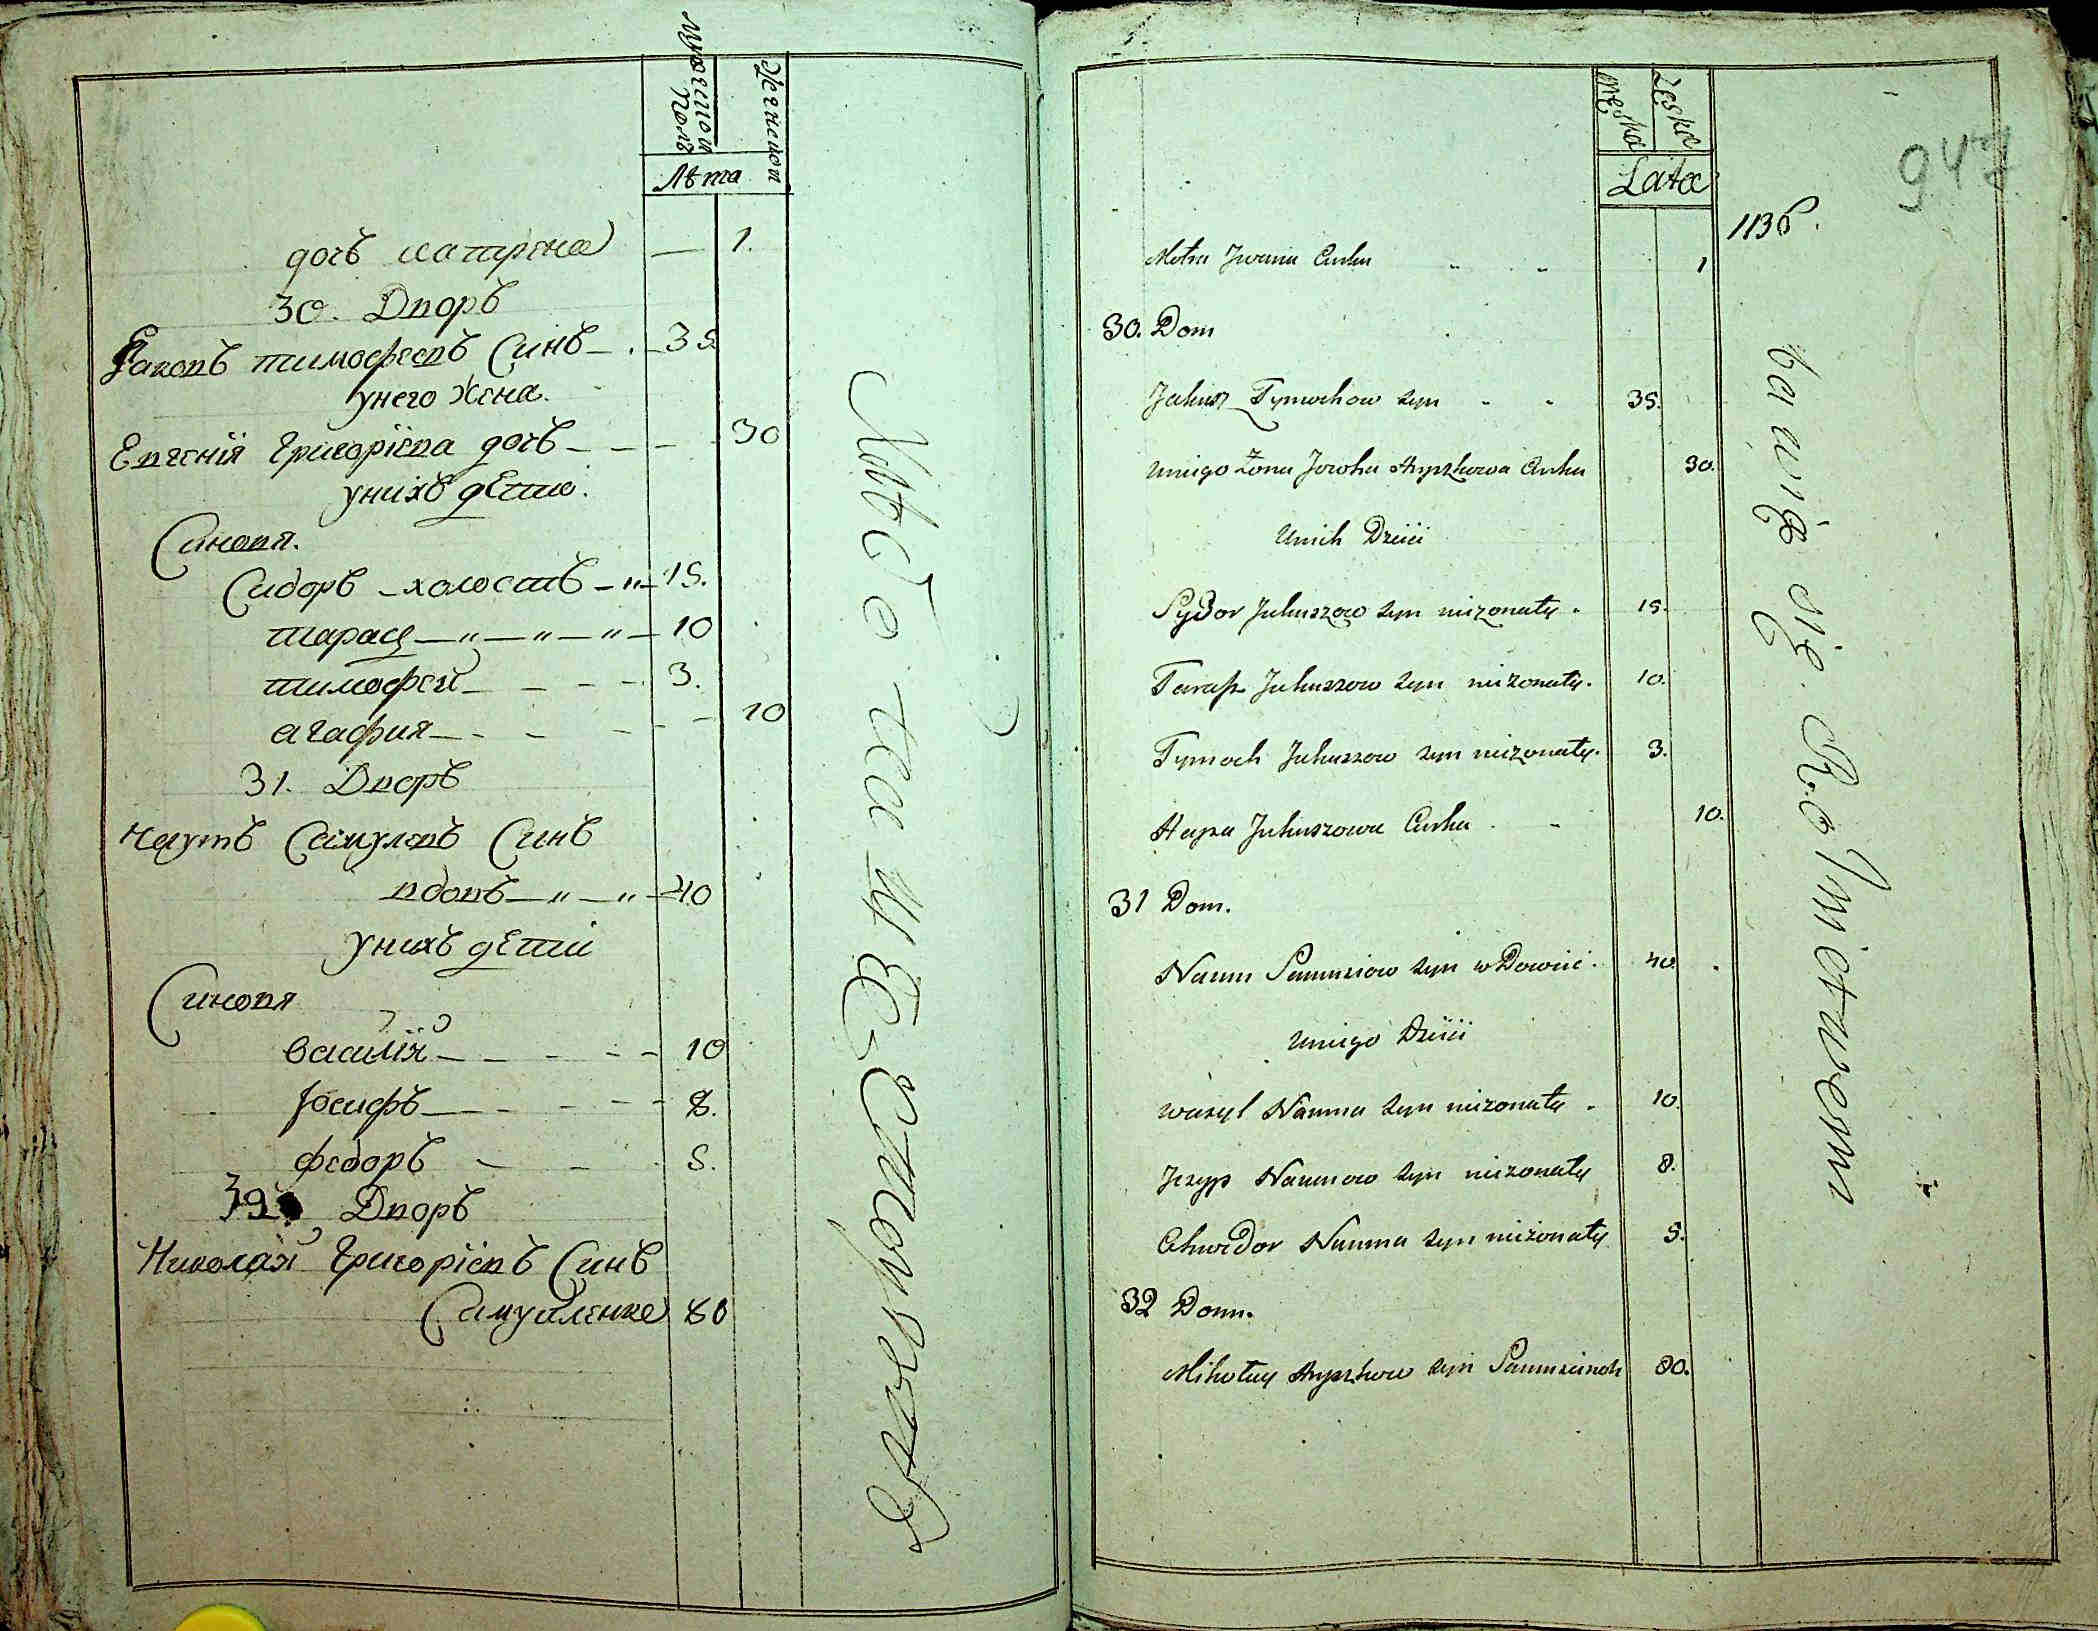 Мужеского Пола
Женскои
Лѣта
дочь матрона — 1.
30. Дворъ
Яковъ тимофеевъ Синъ — . — 35
унего жена.
Евгенія Григоріева дочь — — — 30
унихъ дети.
Синовя.
Сидоръ — холостъ — " — 15.
тарасъ — " — " — " — 10
тимофей — — — — 3.
агафия — — — — — 10
31. Дворъ
Наумъ Самулевъ Синъ
вдовъ — " — " — 40
унихъ дети
Синовя
василій — — — — — 10
Іосифъ — — — — — 8.
федоръ — — — 5.
32 Дворъ
Николай Григоріевъ Синъ
Самуйленко 80
męska
Żeska
Lata
947
1136.
Motra Jwana Curka 1
30. Dom
Jakusz Tymochow syn 35.
uniego Żona Jowha Hryszkowa Curka 30.
Unich Dzieci
Sydor Jakuszow syn nieżonaty. 15.
Taras Jakuszow syn nieżonaty. 10.
Tymoch Jakuszow syn nieżonaty. 3.
Hapa Jakuszowa Curka 10.
31 Dom.
Naum Samusiow syn wDowiec. 40
uniego Dzieci
wasyl Nauma syn nieżonaty. 10.
Jozyp Naumow syn nieżonaty 8.
Chwedor Nauma syn nieżonaty 5.
32 Dom.
Mikołay Hryszkow syn Samusienok 80.